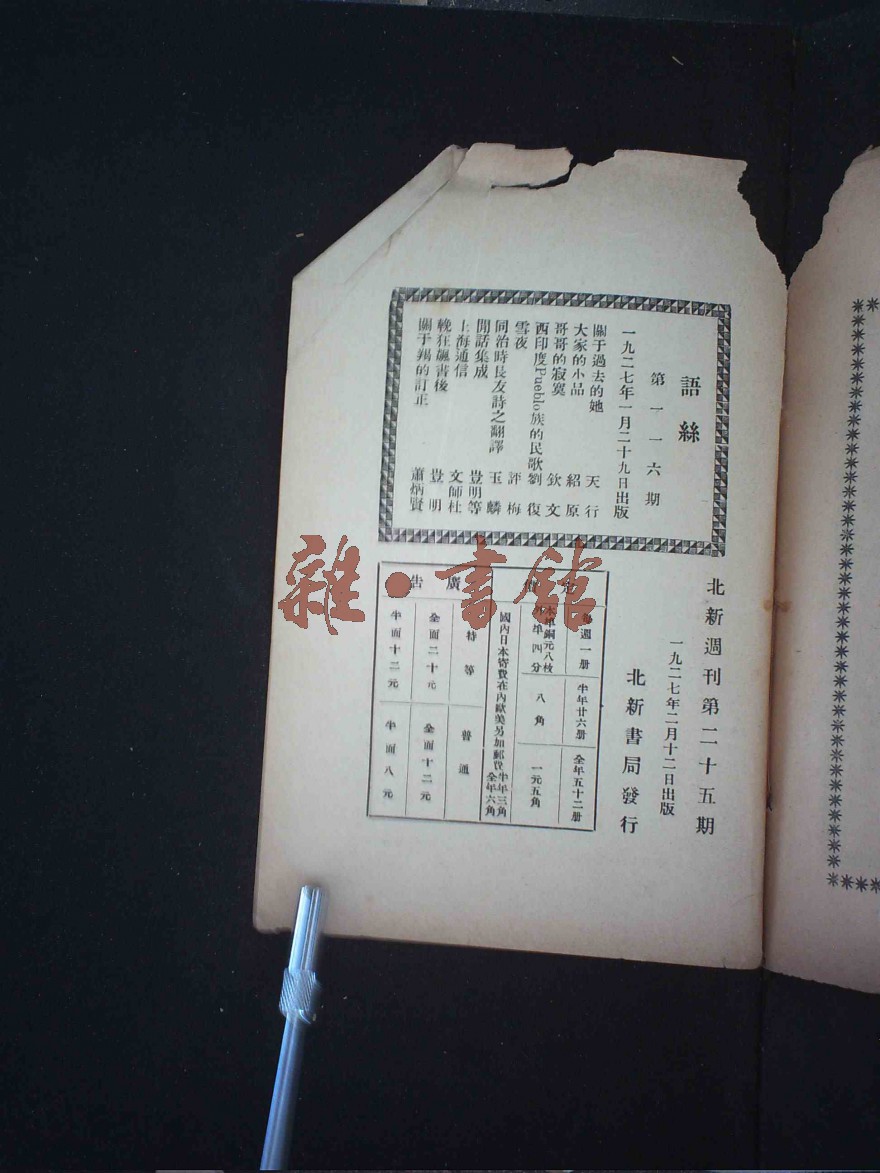 語絲
第一一六期
一九二七年一月二十九日出版
關于過去的她 天行
大家的小品 紹原
哥哥的寂寞 欽文
西印度Pueblo族的民歌 劉復
雪夜 評梅
同治時長友詩之翻譯 玉麟
閒話集成 豈明等
上海通信 文師杜
輓狂飆書後 豈明
關于羯的訂正 蕭炳賢
北新週刊第二十五期
一九二七年二月十二日出版
北新書局發行
每週一册 半年廿六册 全年五十二册
本埠銅元八枚
外埠四分 八角 一元五角
國內日本寄費在內歐美另加郵費半年三角全年六角
廣告
特等 普通
全面二十元 全面十二元
半面十二元 半面八元
雜·書館